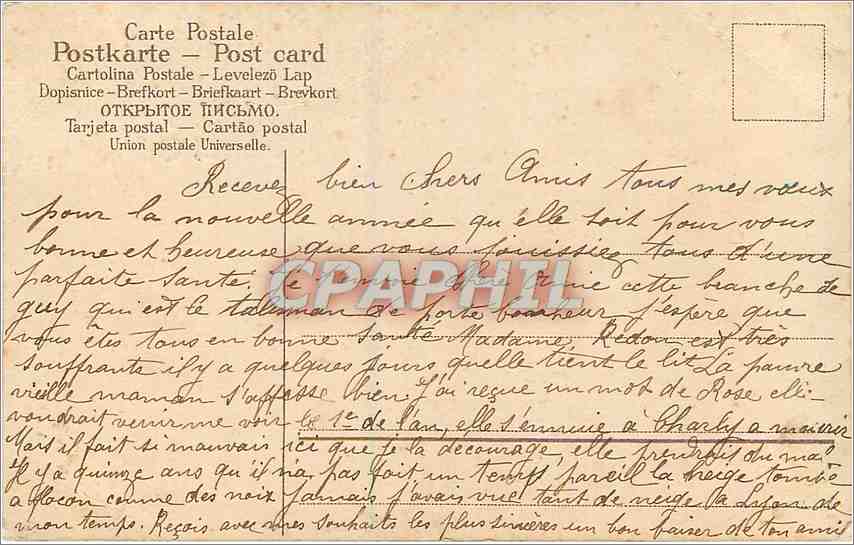 Carte Postale
Postkarte — Post card
Cartolina Postale – Levelezö Lap
Dopisnice – Brefkort – Briefkaart – Brevkort
ОТКРЫТОЕ ПИСЬМО.
Tarjeta postal — Cartão postal
Union postale Universelle.
Recevez bien chers Amis tous mes vœux
pour la nouvelle année qu'elle soit pour vous
bonne et heureuse que vous jouissiez tous d'une
parfaite santé. Je t'envoie chère Amie cette branche de
guy qui est le talisman de porte bonheur j'espère que
vous êtes tous en bonne santé Madame Redon est très
souffrante il y a quelques jours quelle tient le lit La pauvre
vieille maman s'affesse bien. J'ai reçue un mot de Rose elle
voudrait venir me voir le 1er de l'an, elle s'ennuie à Charly a mourir
Mais il fait si mauvais ici que je la décourage, elle prendrait du mal
Il y a quinze ans qu'il na pas fait un temps pareil la neige tombe
a flocon comme des noix jamais j'avais vue tant de neige a Lyon de
mon temps. Reçois avec mes souhaits les plus sincères un bon baiser de ton amie
CPAPHIL